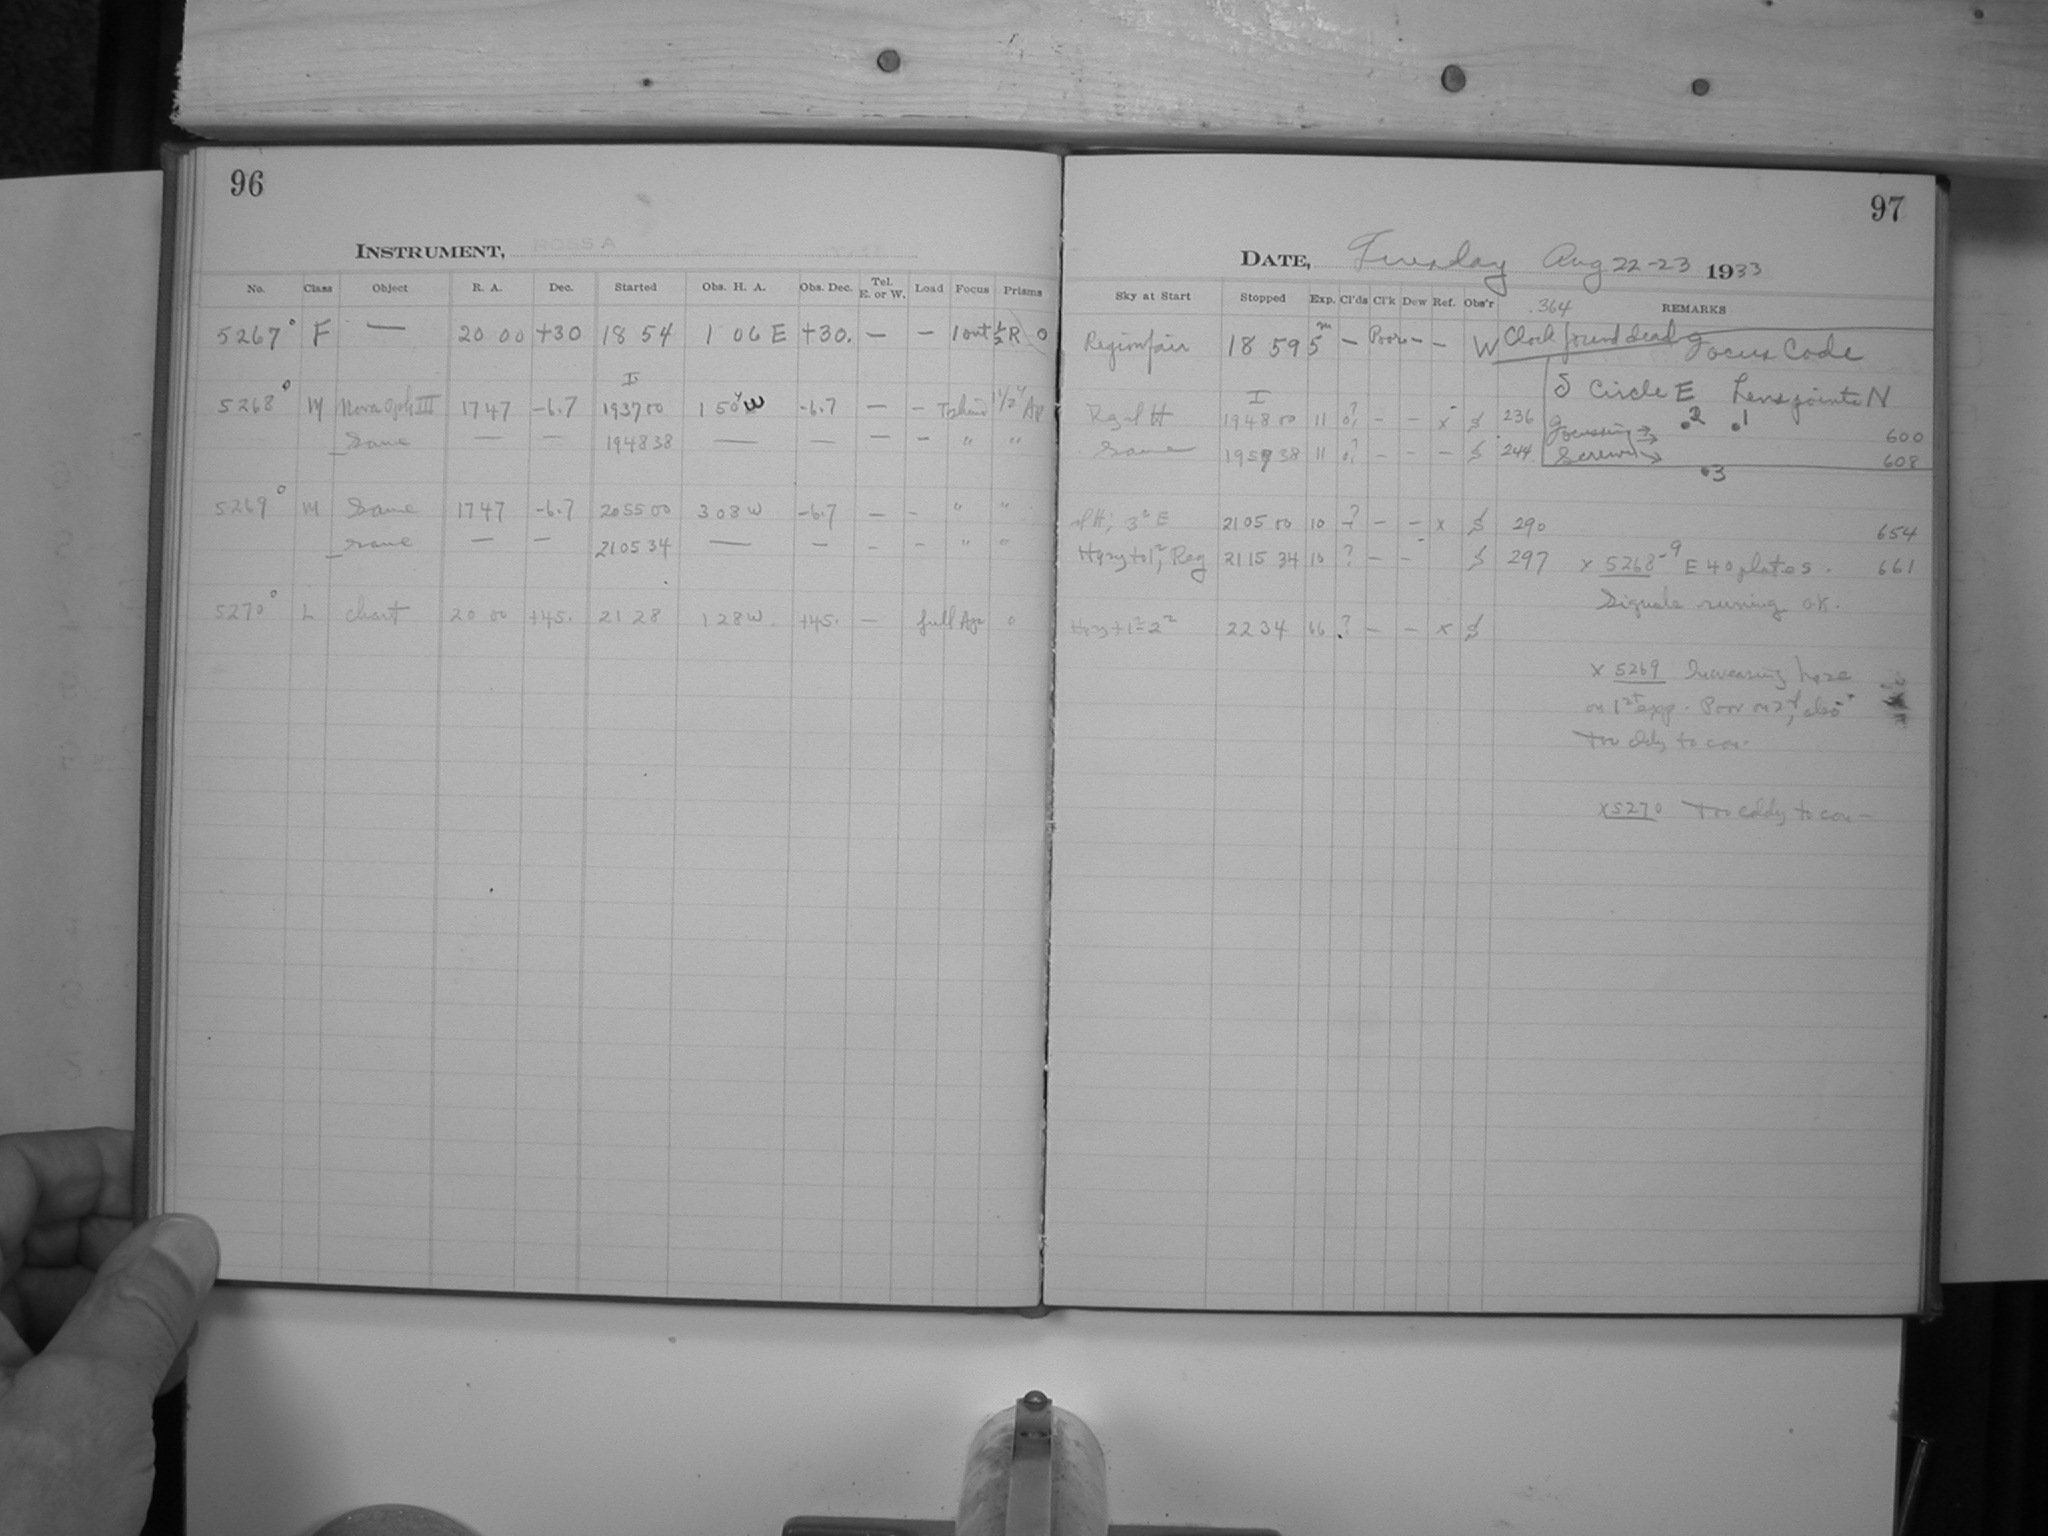 96
INSTRUMENT, ROSS A
No. Class Object R. A. Dec. Started Obs. H. A. Obs. Dec. Tel. E. or W. Load Focus Prisms
5267° F — 20 00 +30 18 54 1 06 E +30. — — 1 out ½ R 0
I
5268° M Nova Oph III 1747 -6.7 193700 1 50 W -6.7 — —
Same — — 194838 — — — — " "
5269° M Same 1747 -6.7 205500 308 W -6.7 — — " "
Same — — 210534 — — — — " "
5270° L chart 20 00 +45. 21 28 1 28 W. +45. — full Ap 0
97
DATE, Tuesday Aug 22-23 1933
Sky at Start Stopped Exp. Cl'ds Cl'k Dew Ref. Obs'r REMARKS
.364
Region fair 18 59 5m — Poor — — W Clock found dead
Focus Code
S Circle E Lens points N
I
194800 11 — — x 236
.2 .1
Focussing →
600
Same 195938 11 — — — 244
Screws →
608
.3
H; 3° E 210500 10 ? — — x 290
654
211534 10 ? — — 297
x 5268-9 E 40 plates.
661
Signals running OK.
2234 66 ? — — x
x 5269 Increasing haze
on 1st exp. Poor on 2d, also
Too cldy to con-
x 5270 Too cldy to con-